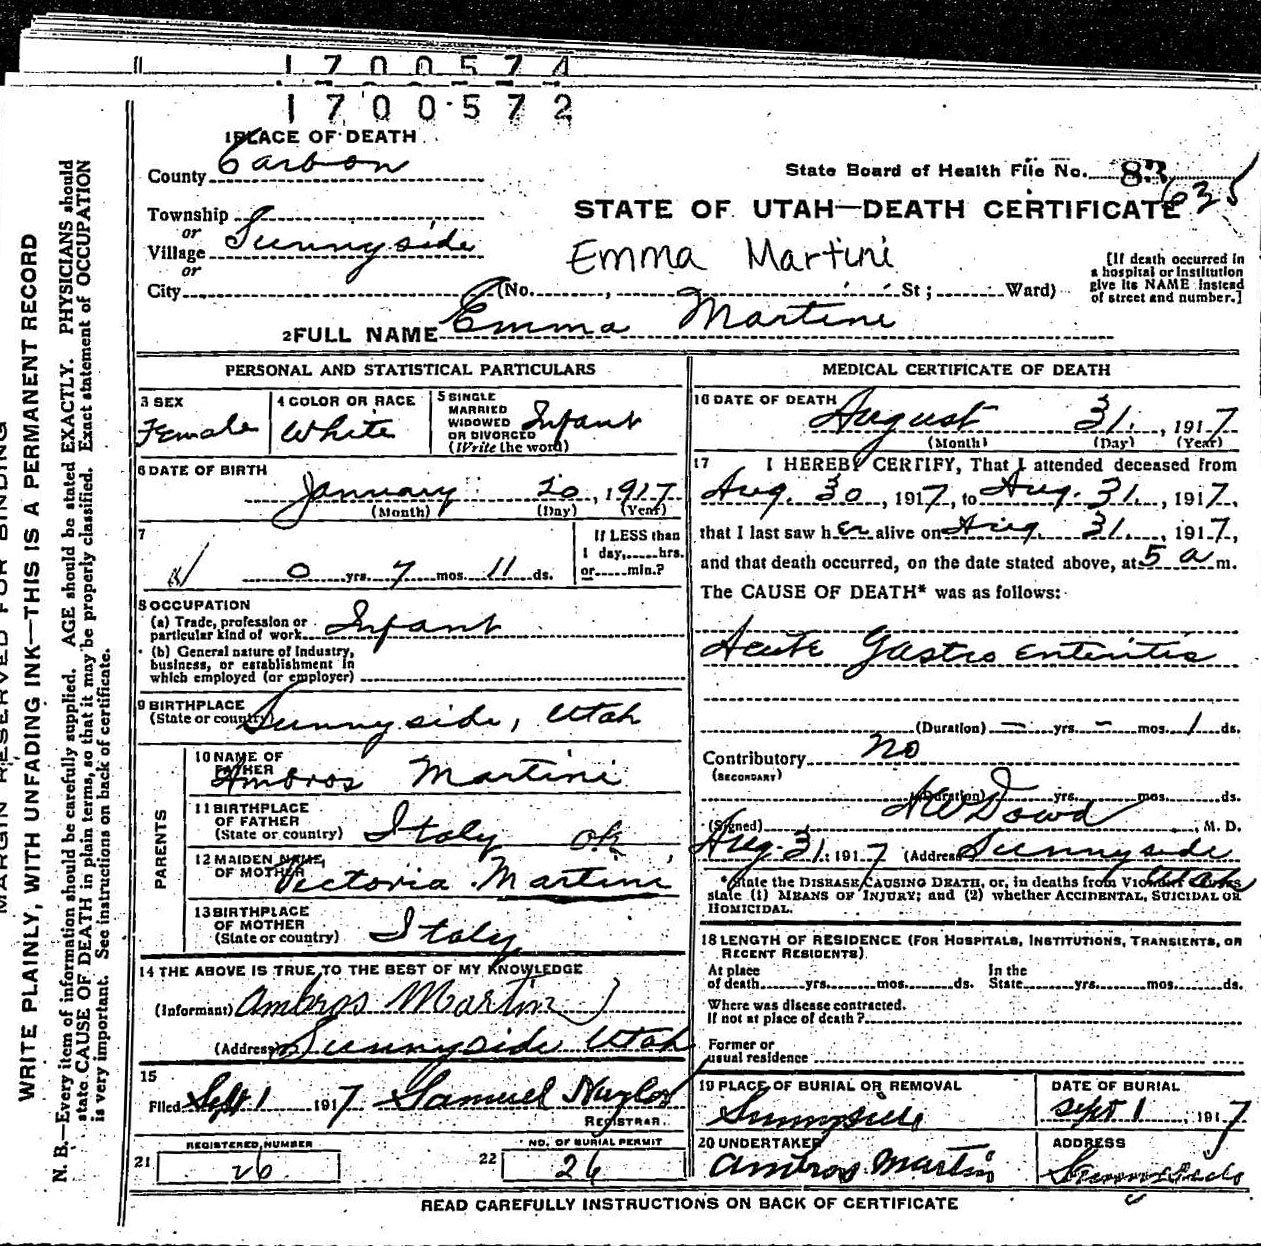 1700574
1700572
1 PLACE OF DEATH
County Carbon
State Board of Health File No. 83
635
STATE OF UTAH—DEATH CERTIFICATE
Township
or
Village Sunnyside
or
Emma Martini
[If death occurred in
a hospital or institution
give its NAME instead
of street and number.]
City (No. , St ; Ward)
2 FULL NAME Emma Martini
PERSONAL AND STATISTICAL PARTICULARS
3 SEX
Female
4 COLOR OR RACE
White
5 SINGLE
MARRIED
WIDOWED
OR DIVORCED
(Write the word)
Infant
6 DATE OF BIRTH
January 20, 1917
(Month) (Day) (Year)
7
0 yrs. 7 mos. 11 ds.
If LESS than
1 day, hrs.
or min.?
8 OCCUPATION
(a) Trade, profession or
particular kind of work Infant
(b) General nature of industry,
business, or establishment in
which employed (or employer)
9 BIRTHPLACE
(State or country) Sunnyside, Utah
PARENTS
10 NAME OF
FATHER
Ambros Martini
11 BIRTHPLACE
OF FATHER
(State or country) Italy ok
12 MAIDEN NAME
OF MOTHER Victoria Martini
13 BIRTHPLACE
OF MOTHER
(State or country) Italy
14 THE ABOVE IS TRUE TO THE BEST OF MY KNOWLEDGE
(Informant) Ambros Martini
(Address) Sunnyside Utah
15
Filed Sept 1 1917 Samuel Naylor
REGISTRAR
REGISTERED NUMBER
21 26
NO. OF BURIAL PERMIT
22 26
MEDICAL CERTIFICATE OF DEATH
16 DATE OF DEATH
August 31, 1917
(Month) (Day) (Year)
17 I HEREBY CERTIFY, That I attended deceased from
Aug. 30, 1917, to Aug. 31, 1917,
that I last saw her alive on Aug. 31, 1917,
and that death occurred, on the date stated above, at 5 a m.
The CAUSE OF DEATH* was as follows:
Acute Gastro enteritis
(Duration) — yrs. — mos. 1 ds.
Contributory no
(SECONDARY)
(Duration) yrs. mos. ds.
(Signed) Dowd, M. D.
Aug. 31, 1917 (Address) Sunnyside
Utah
*State the DISEASE CAUSING DEATH, or, in deaths from VIOLENT CAUSES
state (1) MEANS OF INJURY; and (2) whether ACCIDENTAL, SUICIDAL OR
HOMICIDAL.
18 LENGTH OF RESIDENCE (FOR HOSPITALS, INSTITUTIONS, TRANSIENTS, OR
RECENT RESIDENTS)
At place
of death yrs. mos. ds.
In the
State yrs. mos. ds.
Where was disease contracted.
If not at place of death?
Former or
usual residence
19 PLACE OF BURIAL OR REMOVAL
Sunnyside
DATE OF BURIAL
Sept 1, 1917
20 UNDERTAKER
Ambros Martini
ADDRESS
Sunnyside
READ CAREFULLY INSTRUCTIONS ON BACK OF CERTIFICATE
MARGIN RESERVED FOR BINDING
WRITE PLAINLY, WITH UNFADING INK—THIS IS A PERMANENT RECORD
N. B.—Every item of information should be carefully supplied. AGE should be stated EXACTLY. PHYSICIANS should
state CAUSE OF DEATH in plain terms, so that it may be properly classified. Exact statement of OCCUPATION
is very important. See instructions on back of certificate.